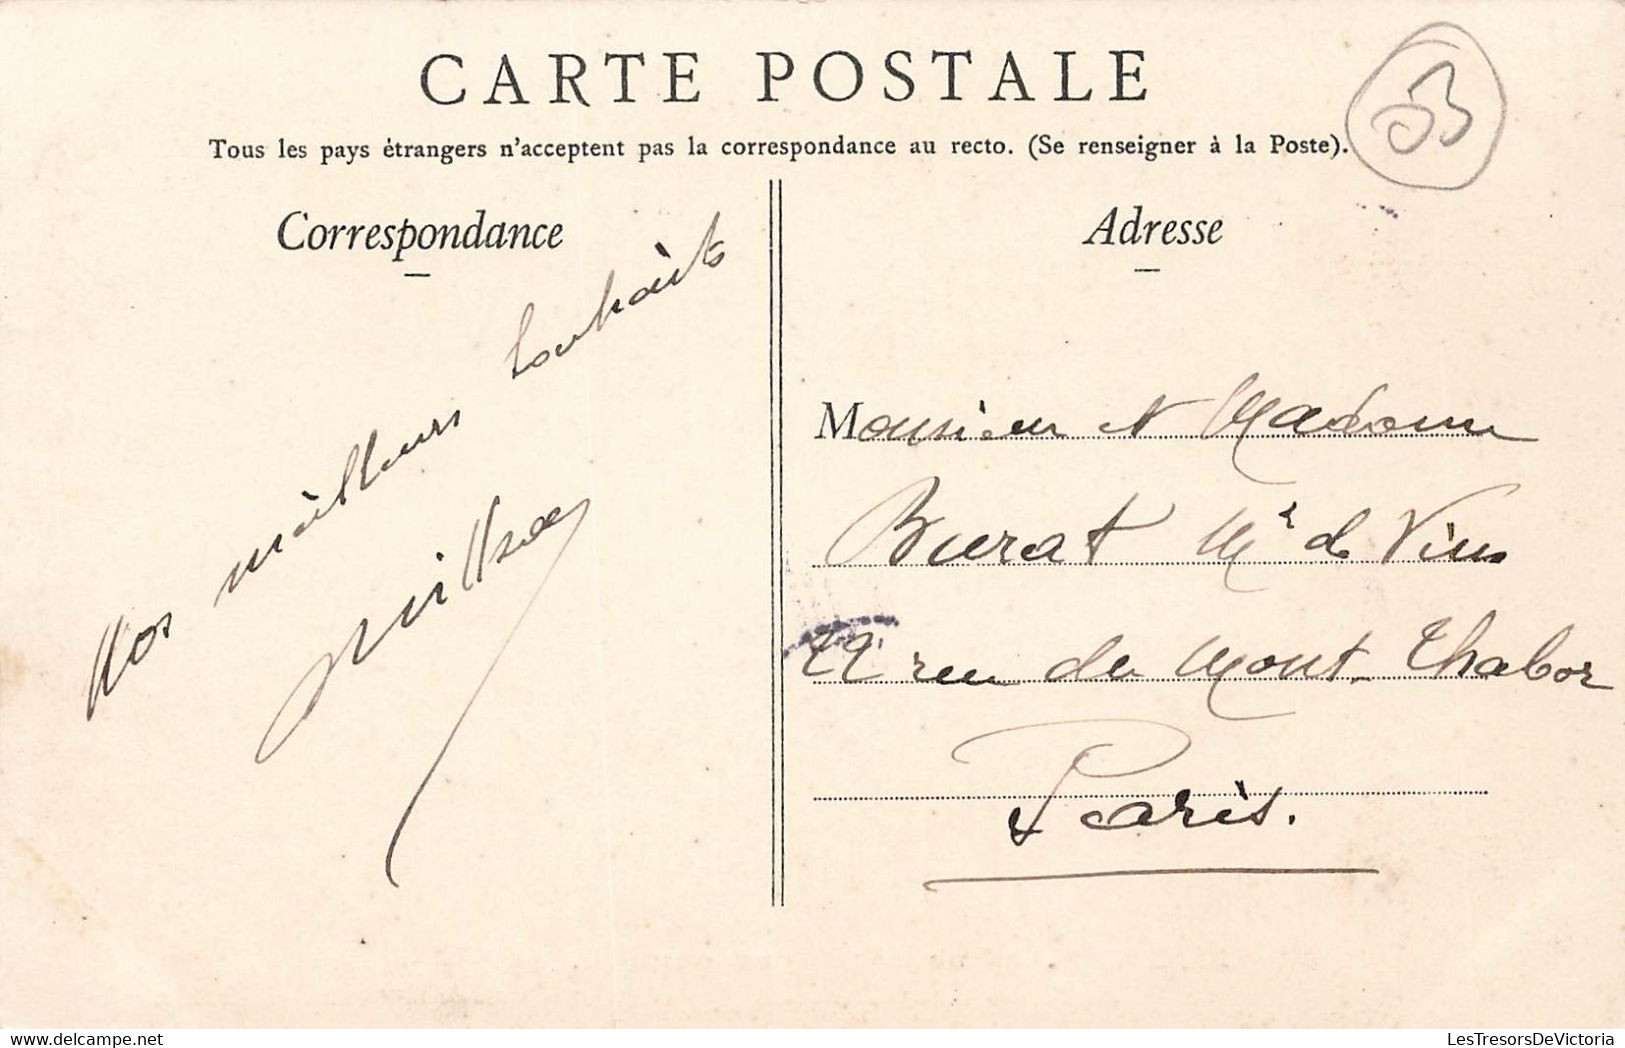 CARTE POSTALE
53
Tous les pays étrangers n'acceptent pas la correspondance au recto. (Se renseigner à la Poste).
Correspondance
Nos meilleurs souhaits
Adresse
Monsieur et Madame
Burat Md de Vins
22 rue du Mont-Thabor
Paris.
LesTresorsDeVictoria